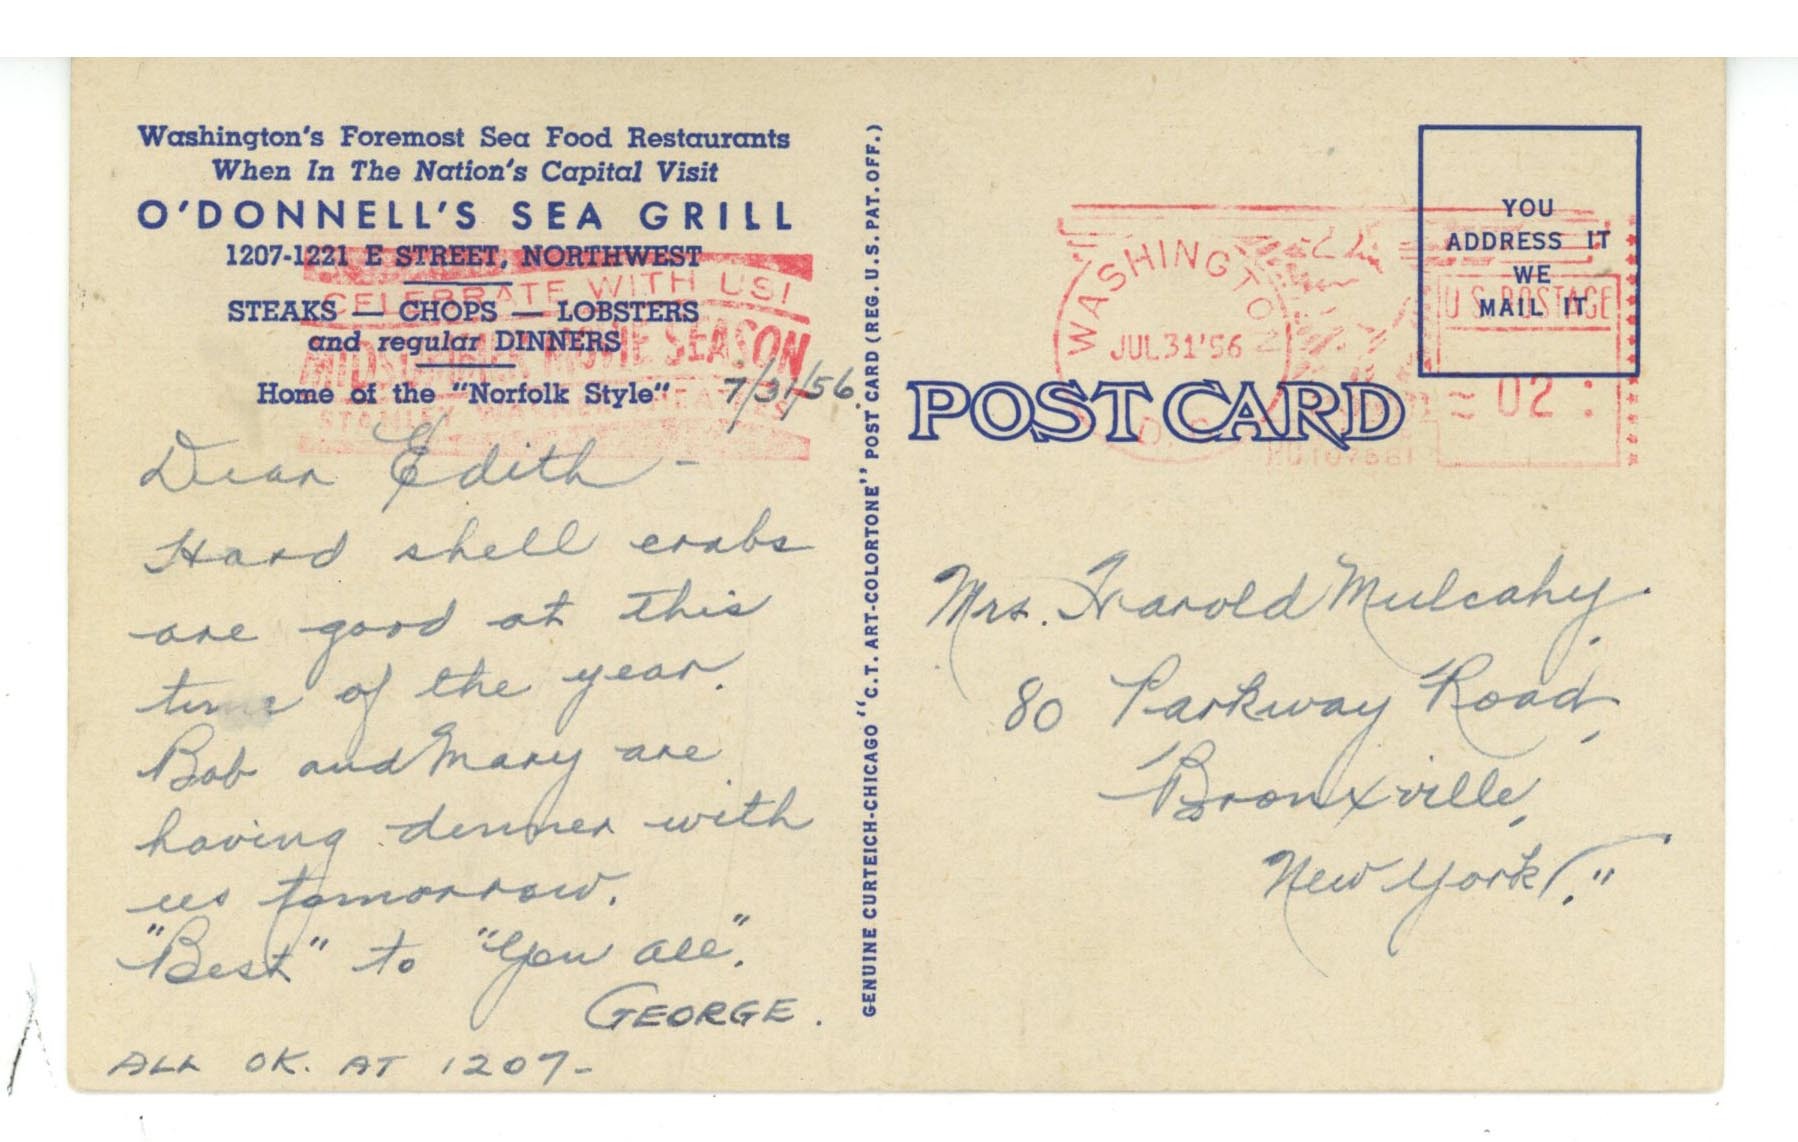 Washington's Foremost Sea Food Restaurants
When In The Nation's Capital Visit
O'DONNELL'S SEA GRILL
1207-1221 E STREET, NORTHWEST
STEAKS — CHOPS — LOBSTERS
and regular DINNERS
Home of the "Norfolk Style"
CELEBRATE WITH US!
MIDSUMMER MOVIE SEASON
STANLEY WARNER THEATRES
7/31/56.
Dear Edith -
Hard shell crabs
are good at this
time of the year.
Bob and Mary are
having dinner with
us tomorrow.
"Best" to "You all".
GEORGE.
ALL OK. AT 1207-
GENUINE CURTEICH-CHICAGO "C.T. ART-COLORTONE" POST CARD (REG. U.S. PAT. OFF.)
POST CARD
WASHINGTON
JUL 31 '56
D.C.
U.S. POSTAGE
02
YOU
ADDRESS IT
WE
MAIL IT
Mrs. Harold Mulcahy.
80 Parkway Road,
Bronxville,
New York,"